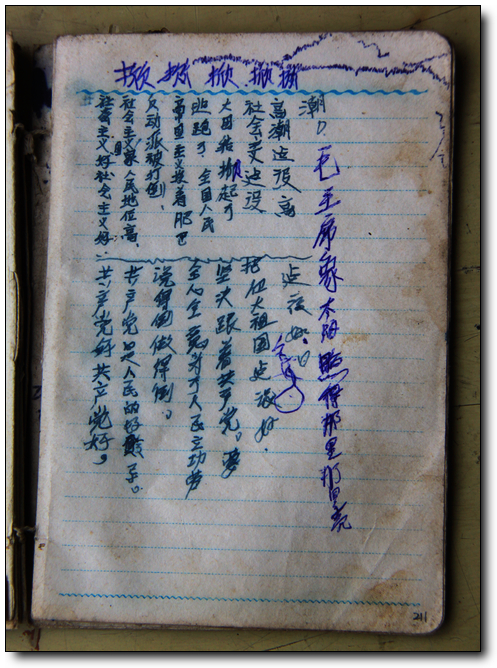 掀 掀 掀 掀 掀
社会主义好社会主义好
社会主义国家人民地位高、
反动派被打倒、
帝国主义夹着肥巴
跑了、全国人民
大团结掀起了
社会主义建设
高潮 建设高
潮。
共产党好共产党好。
共产党是人民的好
说得倒做得倒。
全心全意为了人民立功劳
坚决跟着共产党。要
把伟大祖国建设好.
建设好。
毛主席象太阳照得那里那里亮
211